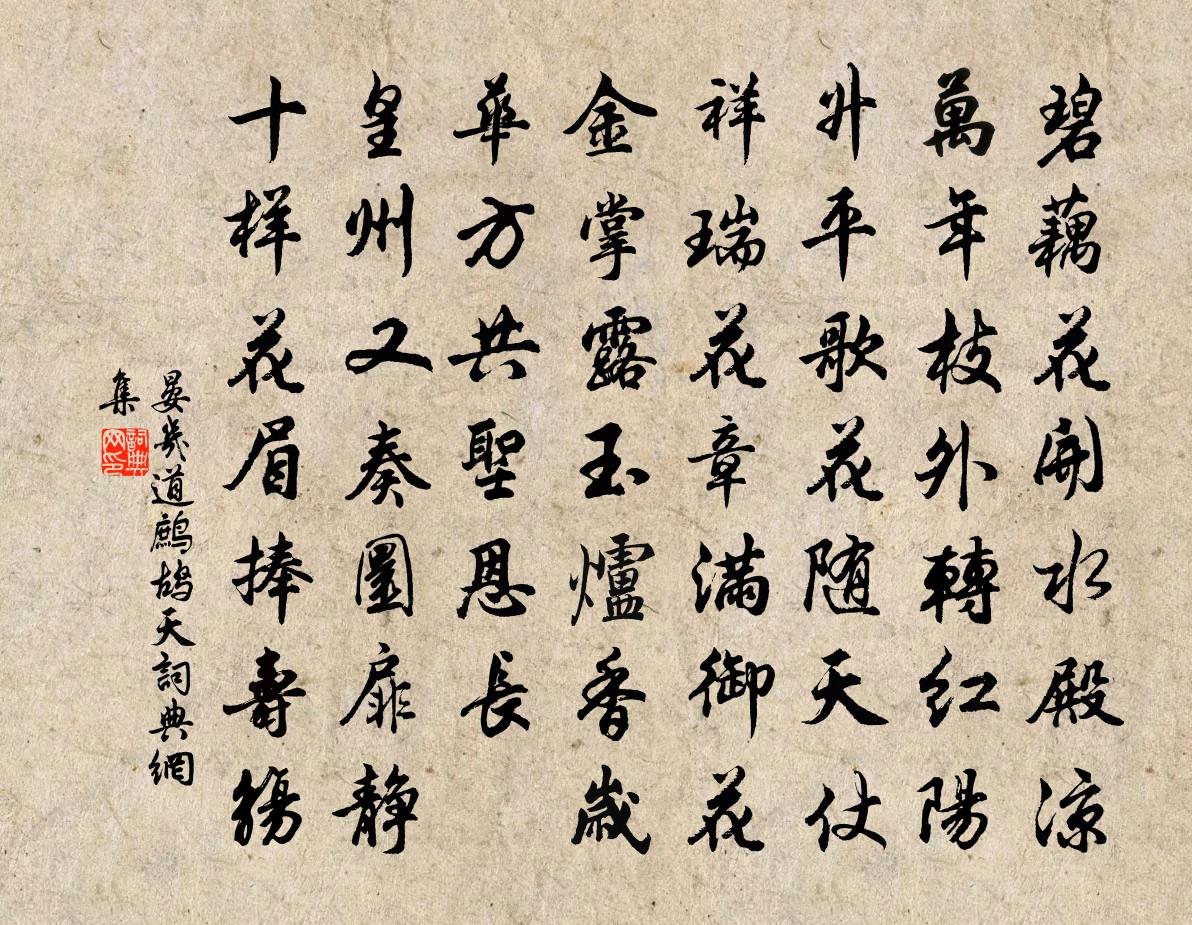 碧藕花開水殿涼
萬年枝外轉紅陽
升平歌花随天仗
祥瑞花章滿御花
金掌露玉爐香歲
華方共聖恩長
皇州又奏圜扉静
十样花眉捧壽觴
晏幾道鷓鴣天詞典網
集
詞典網印